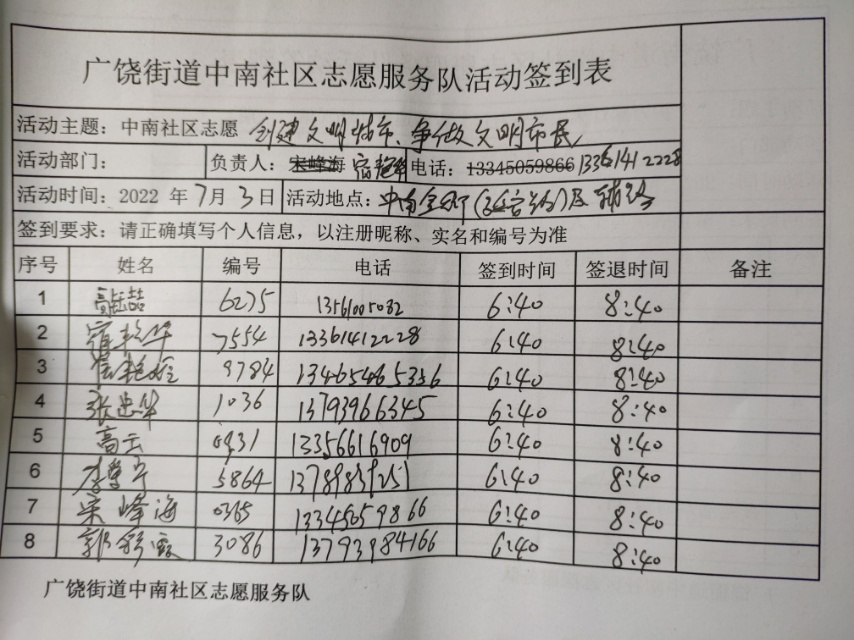 广饶街道中南社区志愿服务队活动签到表
活动主题：中南社区志愿 创建文明城市、争做文明市民
活动部门： 负责人：宋峰海 宿艳华 电话：13345059866 13361412228
活动时间：2022 年 7 月 3 日 活动地点：中南
签到要求：请正确填写个人信息，以注册昵称、实名和编号为准
序号 姓名 编号 电话 签到时间 签退时间 备注
1 6275 13561005082 6:40 8:40
2 宿艳华 7554 13361412228 6:40 8:40
3 9784 13465465336 6:40 8:40
4 张忠华 1036 13793966345 6:40 8:40
5 高云 0931 13356616909 6:40 8:40
6 5864 6:40 8:40
7 宋峰海 0365 13345059866 6:40 8:40
8 郭彩霞 3086 13793984166 6:40 8:40
广饶街道中南社区志愿服务队